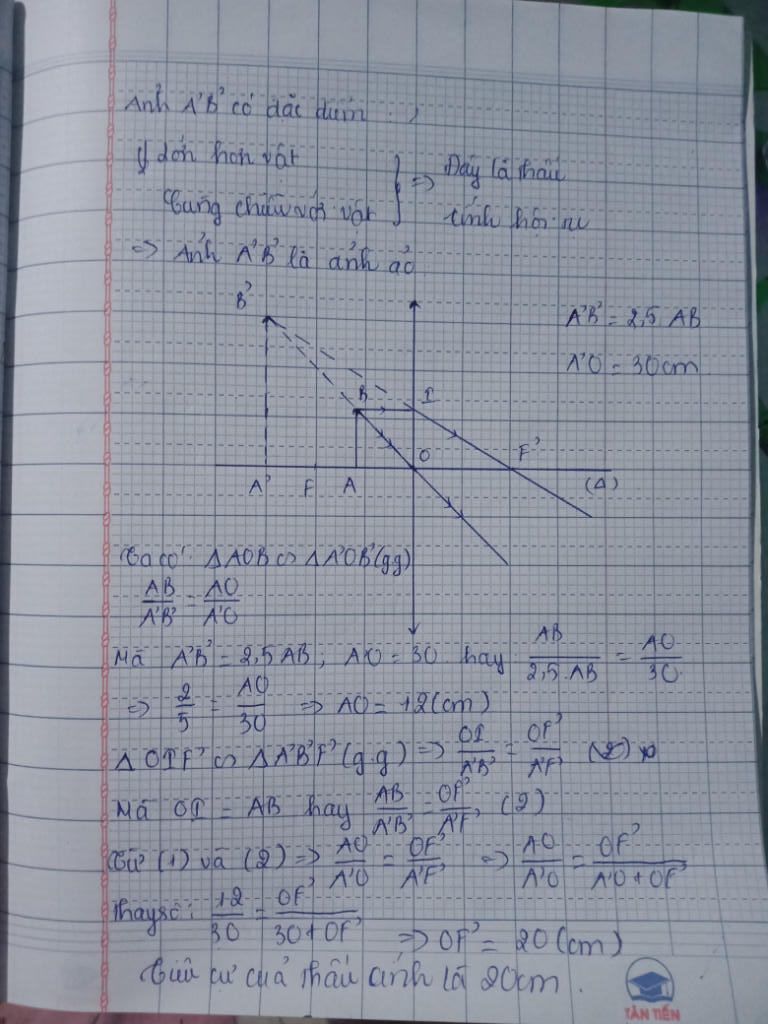 Ảnh A'B' có đặc điểm :
lớn hơn vật
Cùng chiều với vật
} => Đây là thấu
kính hội tụ
=> Ảnh A'B' là ảnh ảo
A'B' = 2,5 AB
A'O = 30cm
B'
B I
O F'
A' F A (Δ)
Ta có: ΔAOB ∽ ΔA'OB' (gg)
AB/A'B' = AO/A'O
Mà A'B' = 2,5AB ; A'O = 30 hay AB/2,5.AB = AO/30
=> 2/5 = AO/30 => AO = 12 (cm)
ΔOIF' ∽ ΔA'B'F' (g.g) => OI/A'B' = OF'/A'F'
Mà OI = AB hay AB/A'B' = OF'/A'F' (2)
Từ (1) và (2) => AO/A'O = OF'/A'F' => AO/A'O = OF'/A'O + OF'
Thay số: 12/30 = OF'/30 + OF' => OF' = 20 (cm)
Tiêu cự của thấu kính là 20cm.
TÂN TIẾN